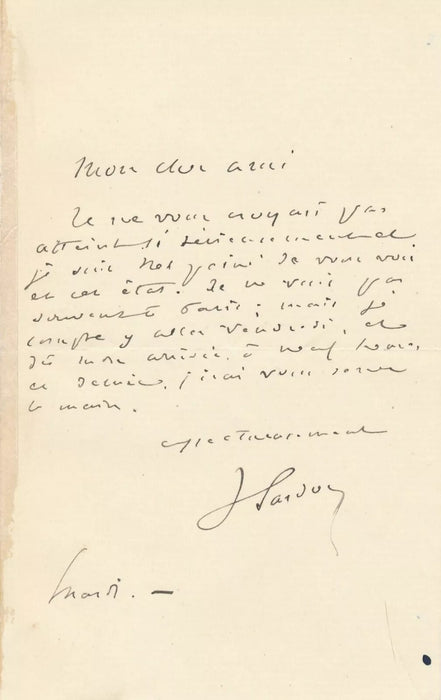 Mon cher ami
Je ne vous croyais pas
atteint si sérieusement et
je suis très peiné de vous voir
en cet état. Je ne vais pas
souvent à Paris ; mais je
compte y aller vendredi, et
dès mon arrivée, à neuf heures
ce , j'irai vous serrer
la main.
affectueusement
V Sardou
Mardi. —